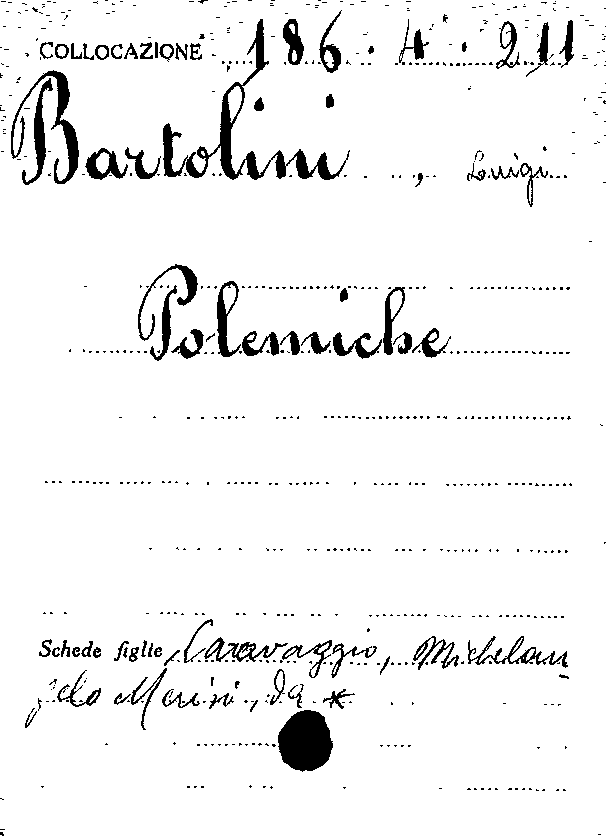 COLLOCAZIONE 186.4.211
Bartolini, Luigi
Polemiche
Schede figlie Caravaggio, Michelan
gelo Merisi, da *